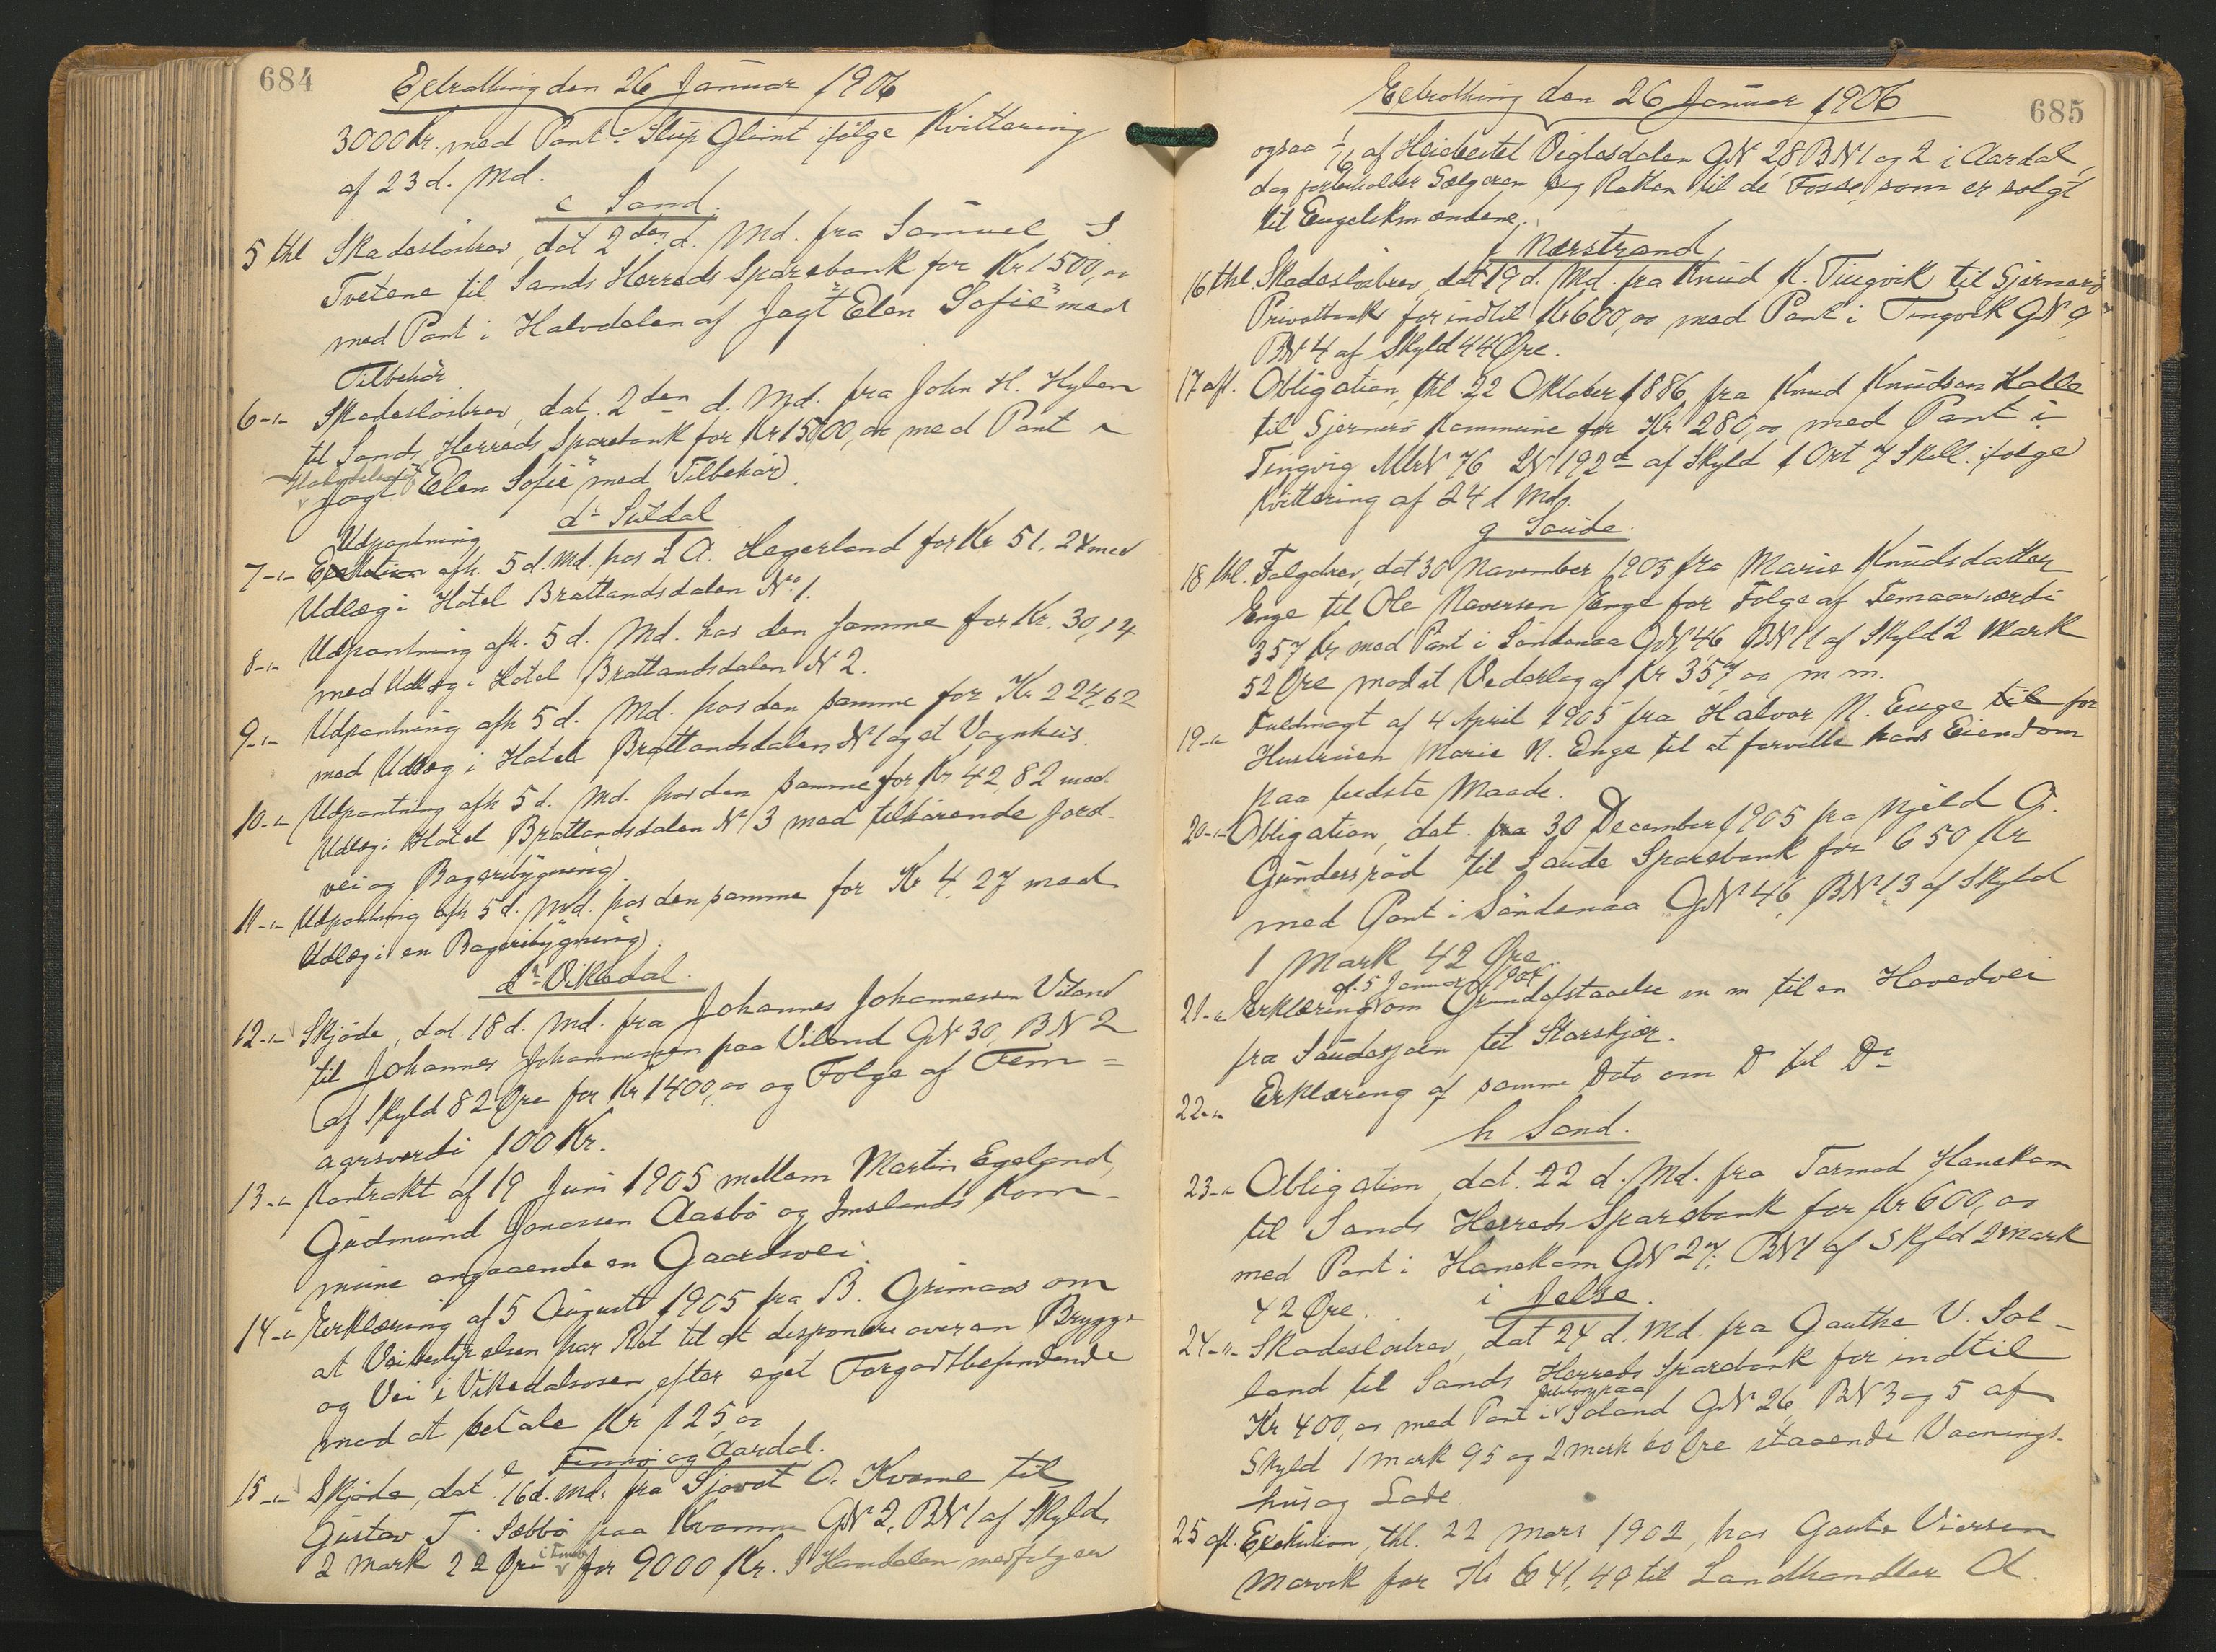 684
Extrathing den 26 Januar 1906
3000 Kr. med Pant i Slup Glimt ifølge Kvittering
af 23 d. Md.
c Sand.
5 thl Skadesløsbrev, dat 2den d. Md. fra Samuel S
Tvetene til Sands Herreds Sparebank for Kr 1500,00
med Pant i Halvdelen af Jagt "Elen Sofie" med
Tilbehør
6-"- Skadesløsbrev, dat. 2den d. Md. fra John H. Hylen
til Sands Herreds Sparebank for Kr 1500,00 med Pant i
Halvdelen af
Jagt "Elen Sofie" med Tilbehør.
d1 Suldal
Udpantning
7-"- Exekution afh. 5 d. Md. hos L A. Hegerland for Kr 51,24 med
Udlæg i Hotel Brattandsdalen No 1.
8-"- Udpantning afh. 5 d. Md. hos den samme for Kr. 30,14
med Udlæg i Hotel Brattandsdalen N 2.
9-"- Udpantning afh 5 d. Md. hos den samme for Kr 224,62
med Udlæg i Hotel Brattandsdalen N 1 og et Vognhus.
10-"- Udpantning afh 5 d. Md. hos den samme for Kr 42,82 med
Udlæg i Hotel Brattandsdalen N 3 med tilhørende Jord-
vei og Bageribygning.
11-"- Udpantning afh 5 d. Md. hos den samme for Kr 4,27 med
Udlæg i en Bageribygning.
d2 Vikedal.
12-"- Skjøde, dat. 18 d. Md. fra Johannes Johannessen Viland
til Johannes Johannessen paa Viland GN 30, BN 2
af Skyld 82 Øre for Kr 1400,00 og Folge af Fem-
aarsverdi 100 Kr.
13-"- Kontrakt af 19 Juni 1905 mellem Martin Egeland,
Gudmund Jonassen Aasbø og Imslands Kom-
mune angaaende en Gaardsvei.
14-"- Erklæring af 5 August 1905 fra B. Grimaas om
at Veibestyrelsen har Ret til at disponere over en Brygge
og Vei i Vikedalsosen efter eget Forgodtbefindende
mod at betale Kr 125,00
e Finnø og Aardal.
15-"- Skjøde, dat. 16 d. Md. fra Sjovat O. Kvame til
Gustav T. Sæbbø paa Kvamme GN 2, BN 1 af Skyld
2 Mark 22 Øre i Finnø for 9000 Kr. I Handelen medfølger
685
Extrathing den 26 Januar 1906
ogsaa 1/16 af Heiebeitet Viglesdalen GN 28 BN 1 og 2 i Aardal,
dog forbeholder Sælgeren sig Retten til de Fosse, som er solgt
til Engelskmændene.
f Nærstrand
16 thl. Skadesløsbrev, dat 19 d. Md. fra Knud K. Tingvik til Sjernerø
Privatbank for indtil Kr 600,00 med Pant i Tingvik GN 9
BN 4 af Skyld 44 Øre.
17 afl. Obligation, thl 22 Oktober 1886, fra Knud Knudsen Halle
til Sjernerø Kommune for Kr 280,00 med Pant i
Tingvig MtrN 76 LN 192a af Skyld 1 Ort 7 Skill. ifølge
Kvittering af 24 d Md.
g Saude.
18 thl. Folgebrev, dat 30 November 1905 fra Marie Knudsdatter
Enge til Ole Naversen Enge for Folge af Femaarsværdi
357 Kr med Pant i Søndenaa GN 46 BN 11 af Skyld 2 Mark
52 Øre mod et Vederlag af Kr 357,00 m m.
19-"- Fuldmagt af 4 April 1905 fra Halvor N. Enge til for
Hustruen Marie N. Enge til at forvalte hans Eiendom
paa bedste Maade.
20-"- Obligation, dat. fra 30 December 1905 fra Njeld G.
Gundersrød til Saude Sparebank for 650 Kr
med Pant i Søndenaa GN 46, BN 13 af Skyld
1 Mark 42 Øre.
af 5 Januar 1904
21-"- Erklæring om Grundafstaaelse m m til en Hovedvei
fra Saudasjøen til Storskjær.
22-"- Erklæring af samme Dato om Do til Do
h Sand.
23-"- Obligation, dat. 22 d. Md. fra Tarmod Hanekam
til Sands Herreds Sparebank for Kr 600,00
med Pant i Hanekam GN 27, BN 1 af Skyld 2 Mark
42 Øre.
i Jelse.
24-"- Skadesløsbrev, dat 24 d. Md. fra Gauthe V. Sol-
land til Sands Herreds Sparebank for indtil
Kr 400,00 med Pant i paa Soland GN 26, BN 3 og 5 af
Skyld 1 Mark 95 og 2 Mark 60 Øre staaende Vaanings-
hus og Lade
25 afl. Exekution, thl. 22 Mars 1902, hos Gaute Viersen
Marvik for Kr 641,49 til Landhandler A.